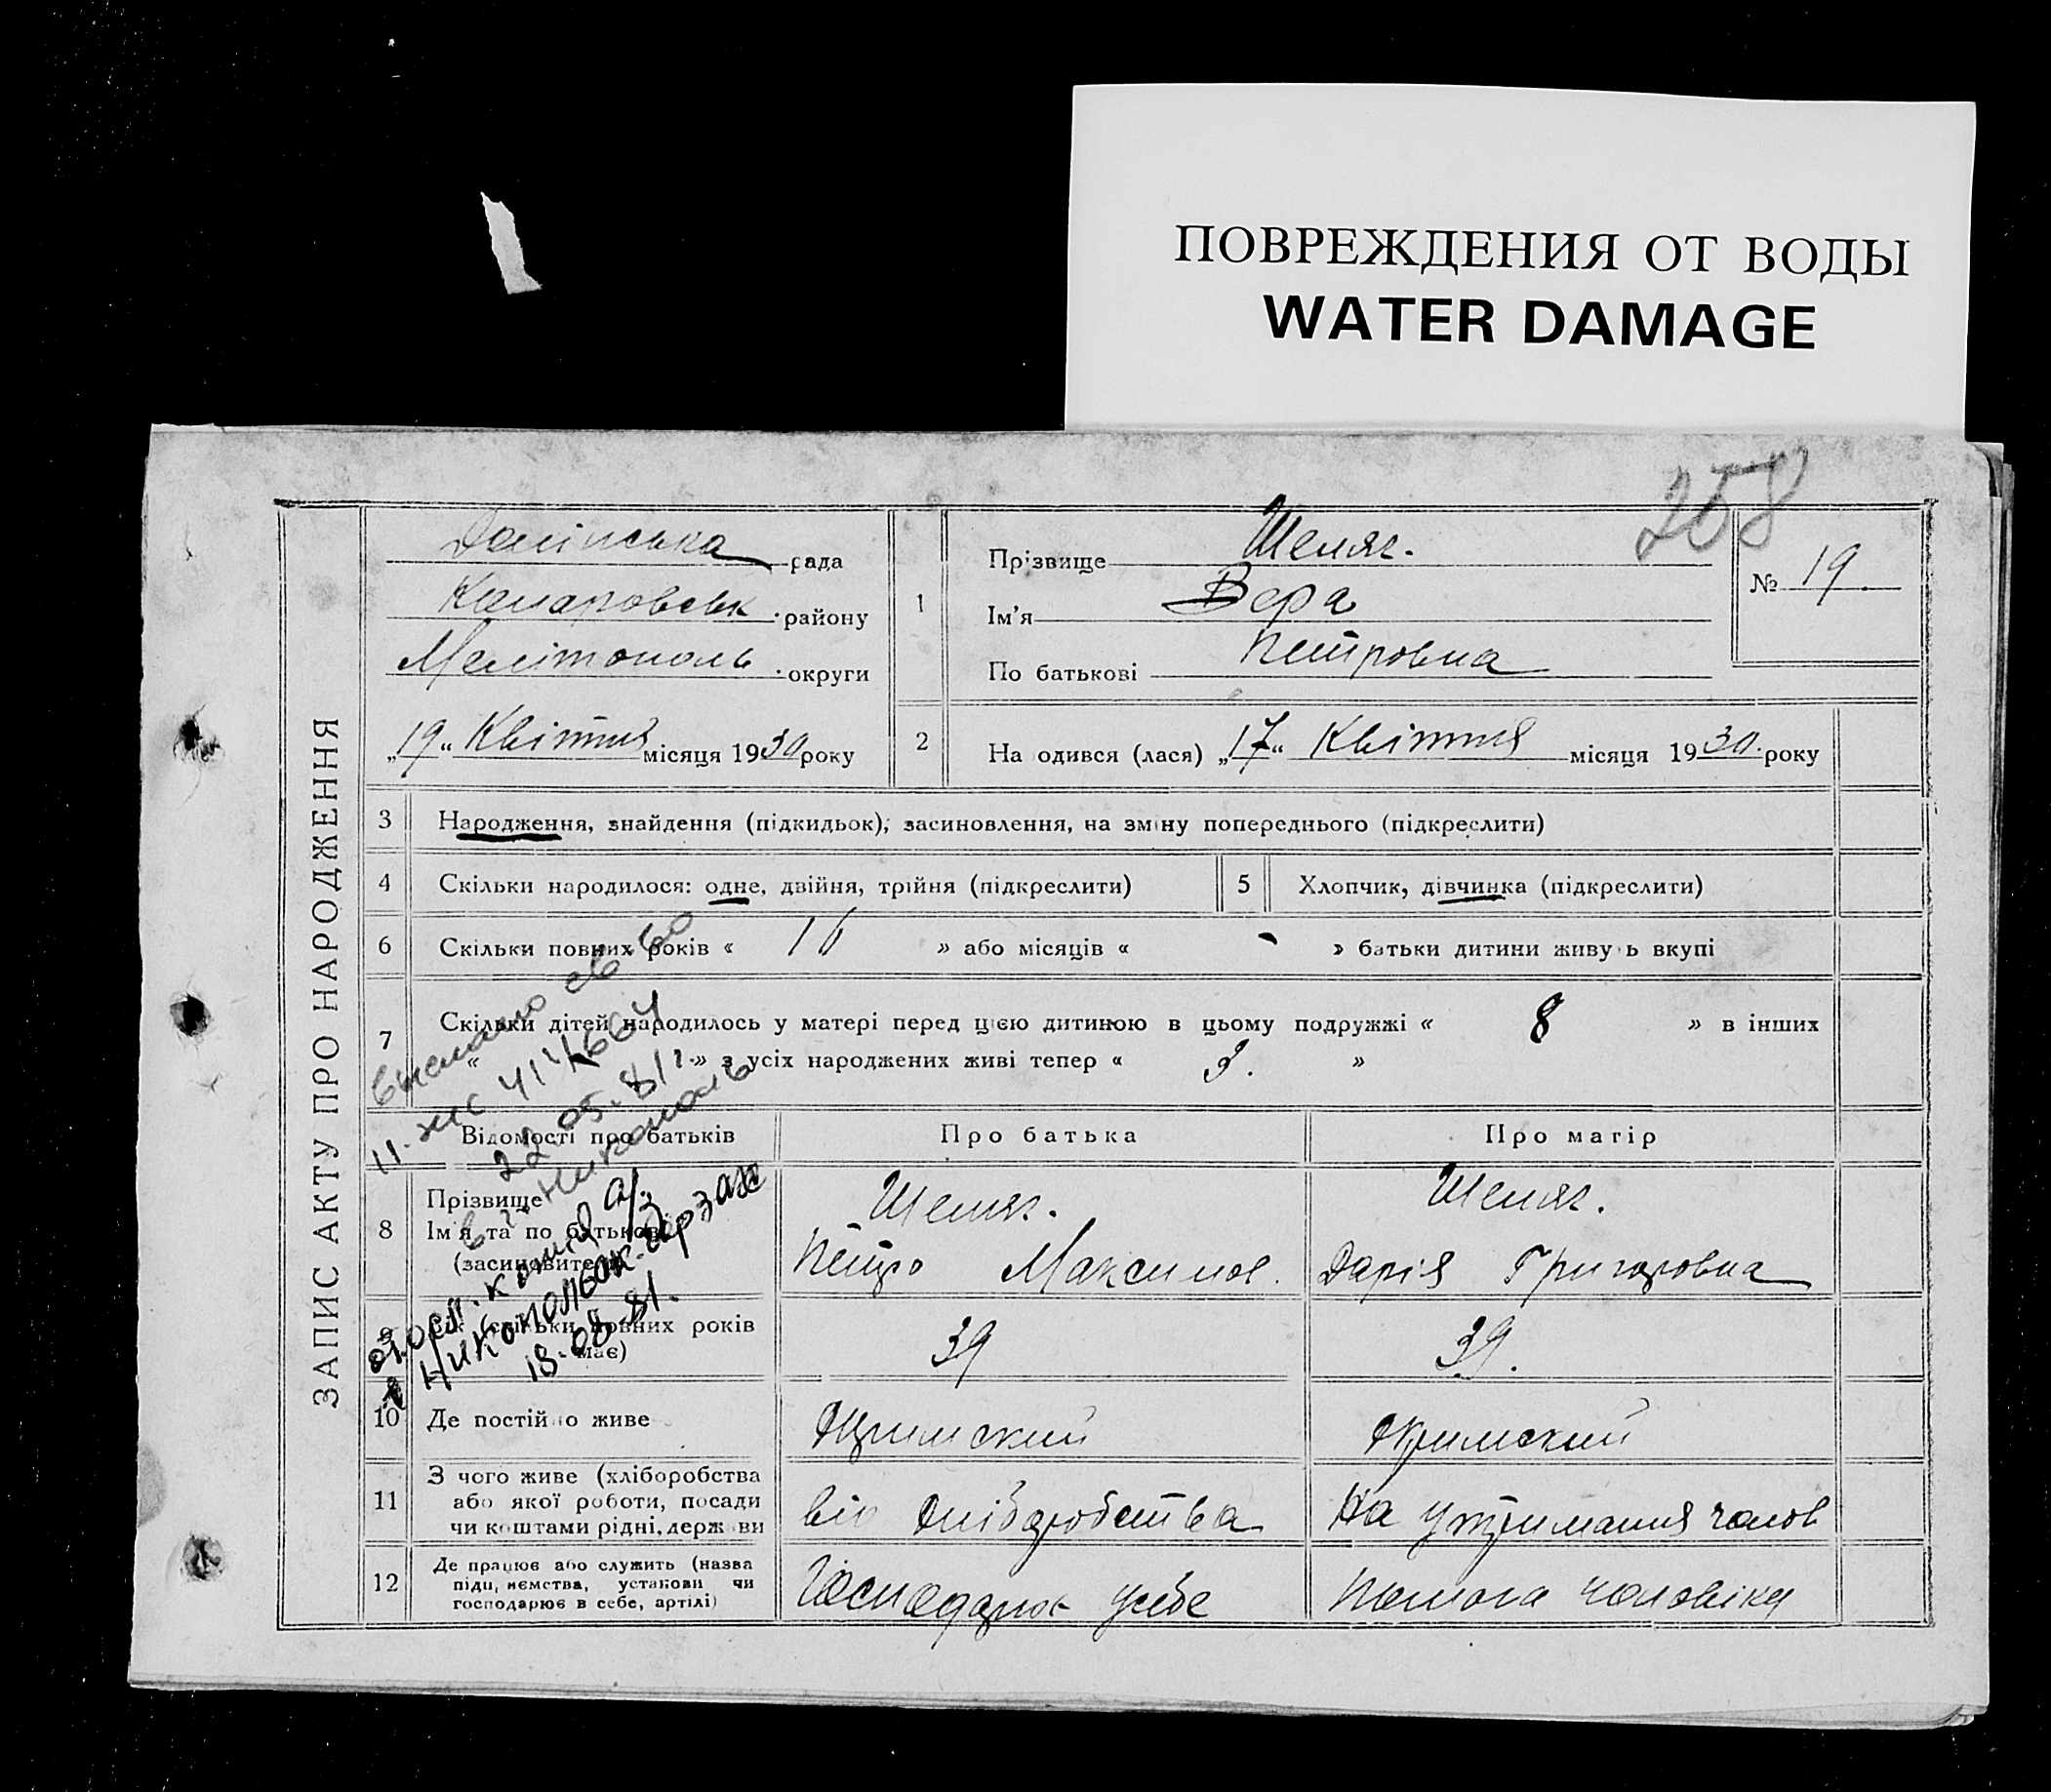 ПОВРЕЖДЕНИЯ ОТ ВОДЫ
WATER DAMAGE
258
ЗАПИС АКТУ ПРО НАРОДЖЕННЯ
рада
району
Мелітополь округи
„19“ Квітня місяця 1930 року
1
Прізвище Шеляг.
Ім'я Вера
По батькові Петровна
№ 19.
2
На одився (лася) „17“ Квітня місяця 1930. року
3 Народження, знайдення (підкидьок), засиновлення, на зміну попереднього (підкреслити)
4 Скільки народилося: одне, двійня, трійня (підкреслити)
5 Хлопчик, дівчинка (підкреслити)
6 Скільки повних років « 16 » або місяців « - » батьки дитини живу ь вкупі
7 Скільки дітей народилось у матері перед цією дитиною в цьому подружжі « 8 » в інших
« » з усіх народжених живі тепер « 3. »
Відомості про батьків
Про батька
Про матір
8 Прізвище
Ім'я та по батькові
(засиновителі)
Шеляг.
Петро Максимов.
Шеляг.
Дарія Григоровна
9 Вік (скільки повних років
має)
39
39.
10 Де постійно живе
11 З чого живе (хліборобства
або якої роботи, посади
чи коштами рідні, держави
від хліборобства
На утримання чолов
12 Де працює або служить (назва
підп, иємства, установи чи
господарює в себе, артілі)
Господарює усебе
чоловіка
выслано св-во
22.05.81г
в г. Никополь
Никополь
18.08.81.